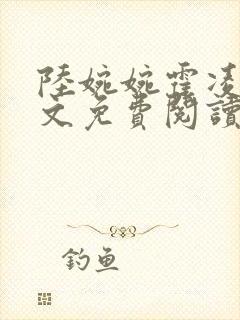 陸婉婉霍凌
文免費閱讀
釣魚